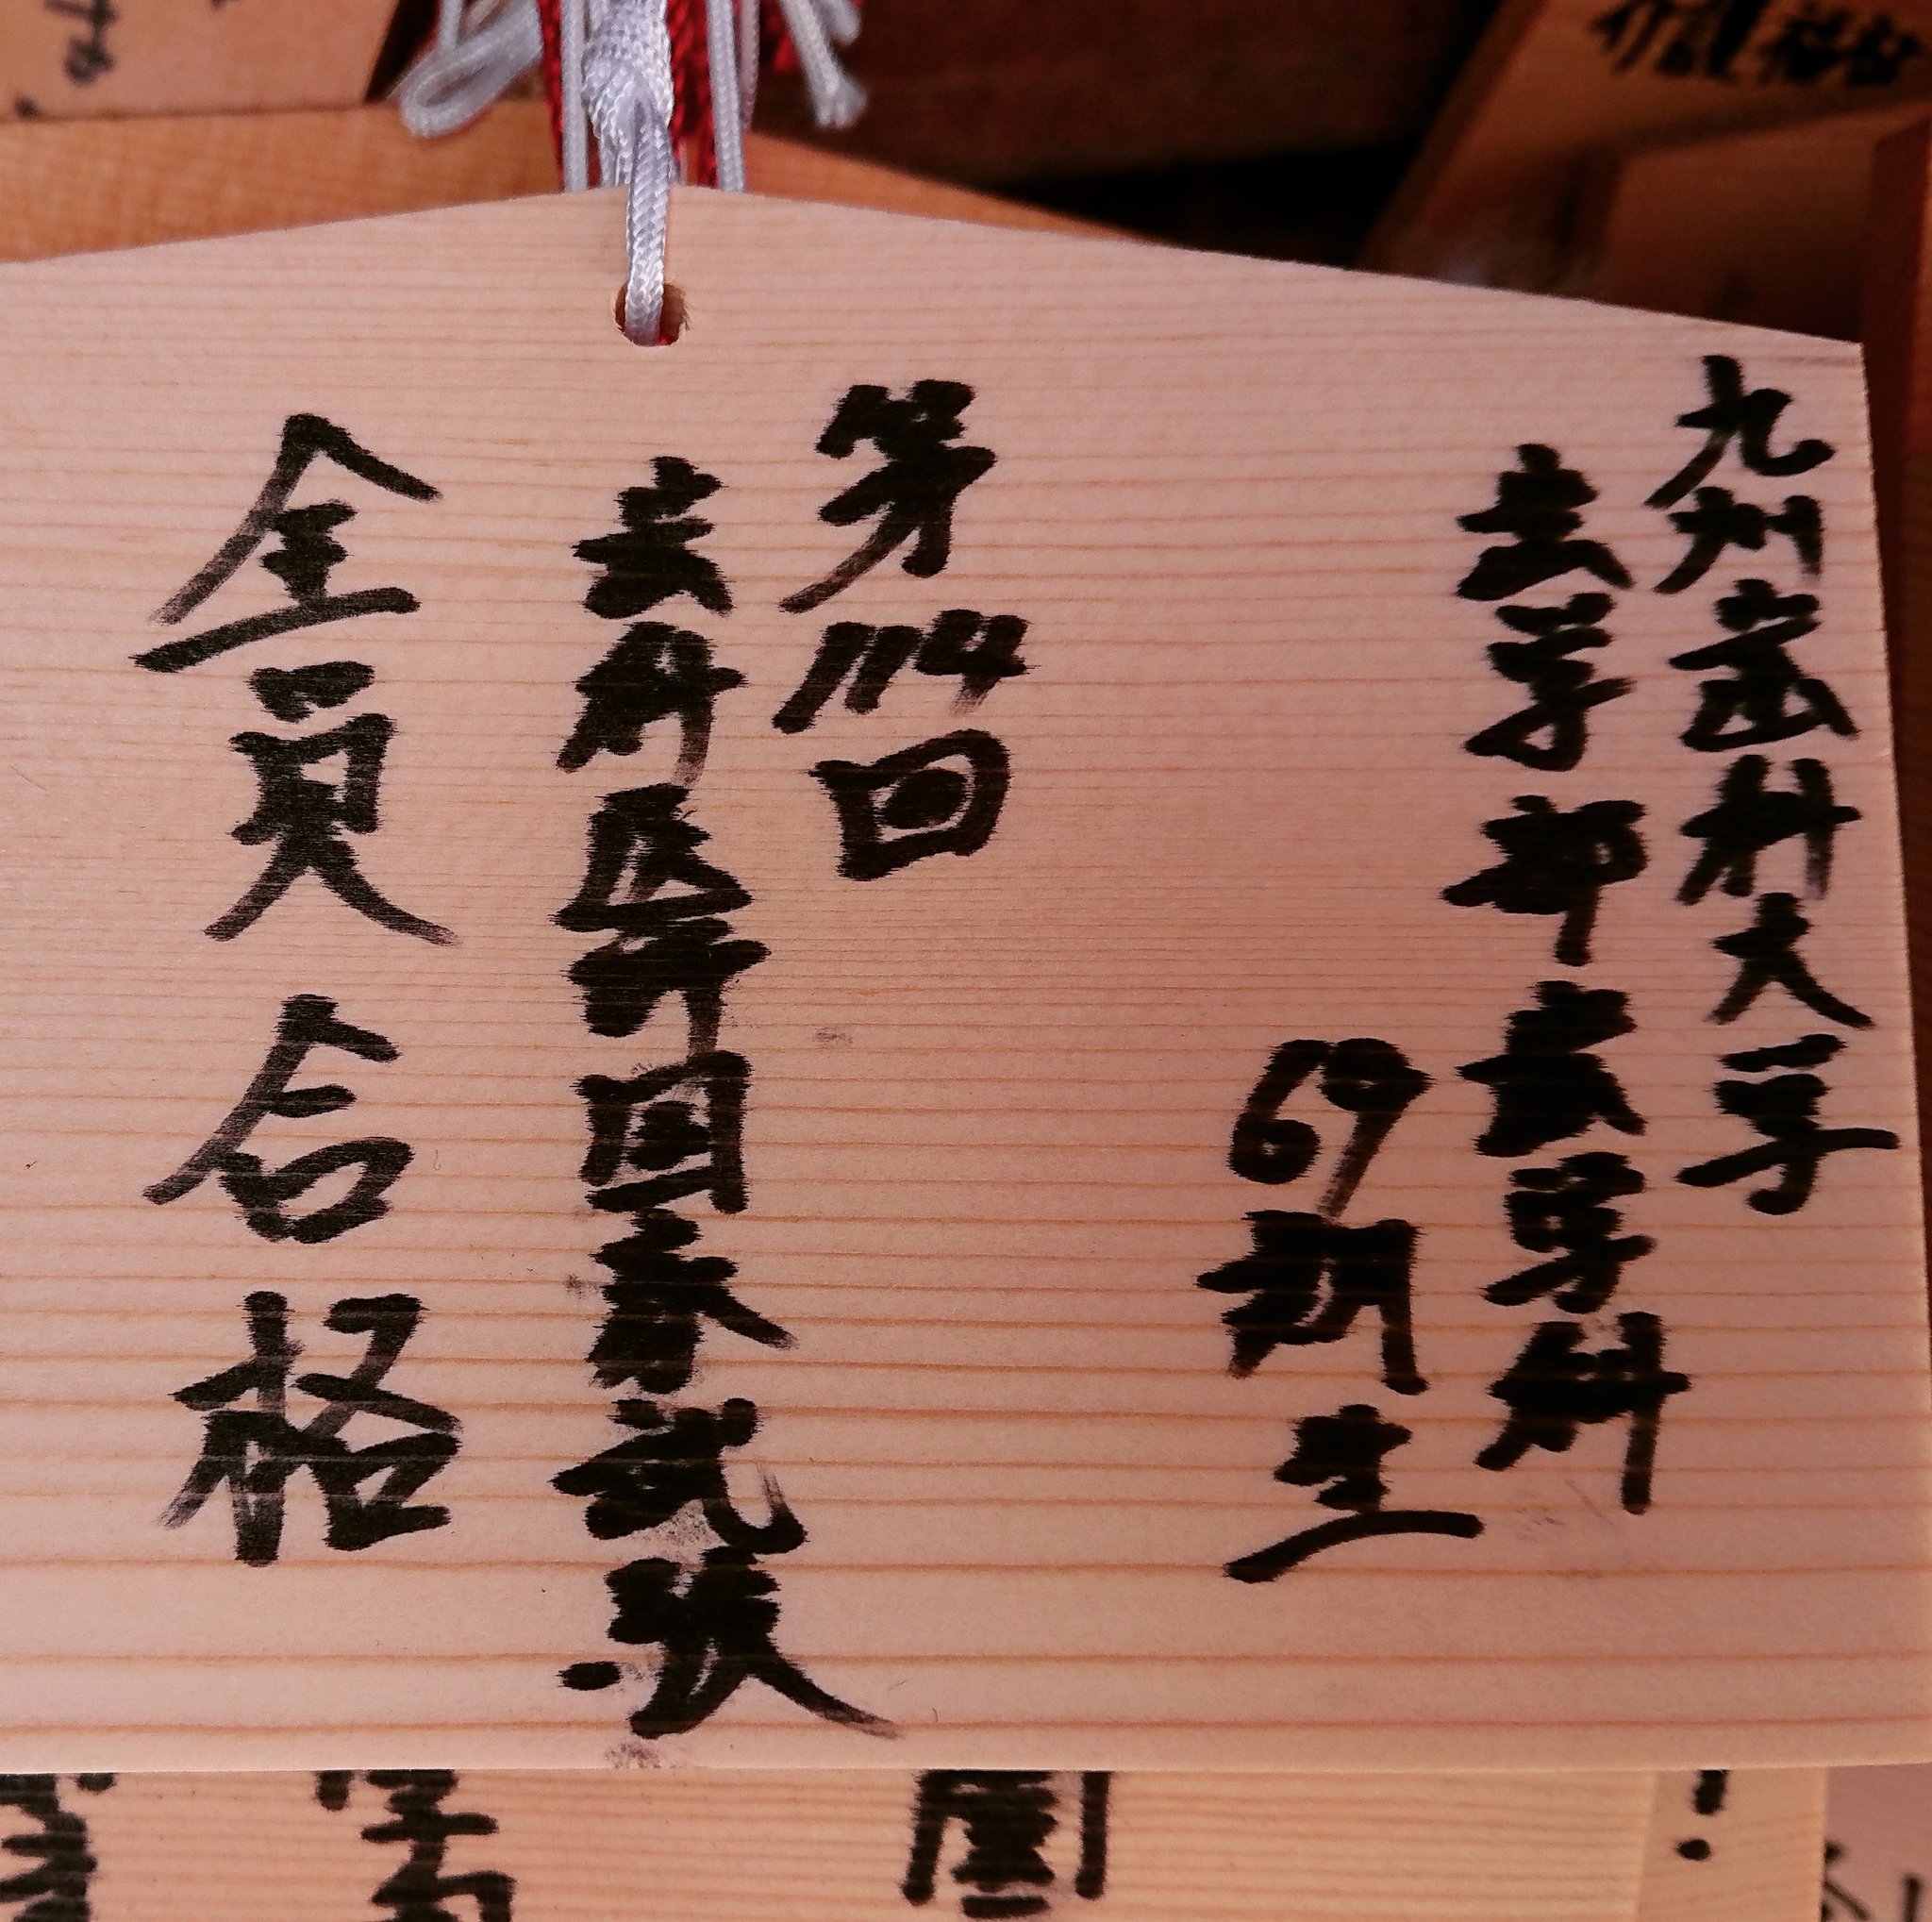 九州歯科大学
歯学部歯学科
69期生
第114回
歯科医師国家試験
全員合格